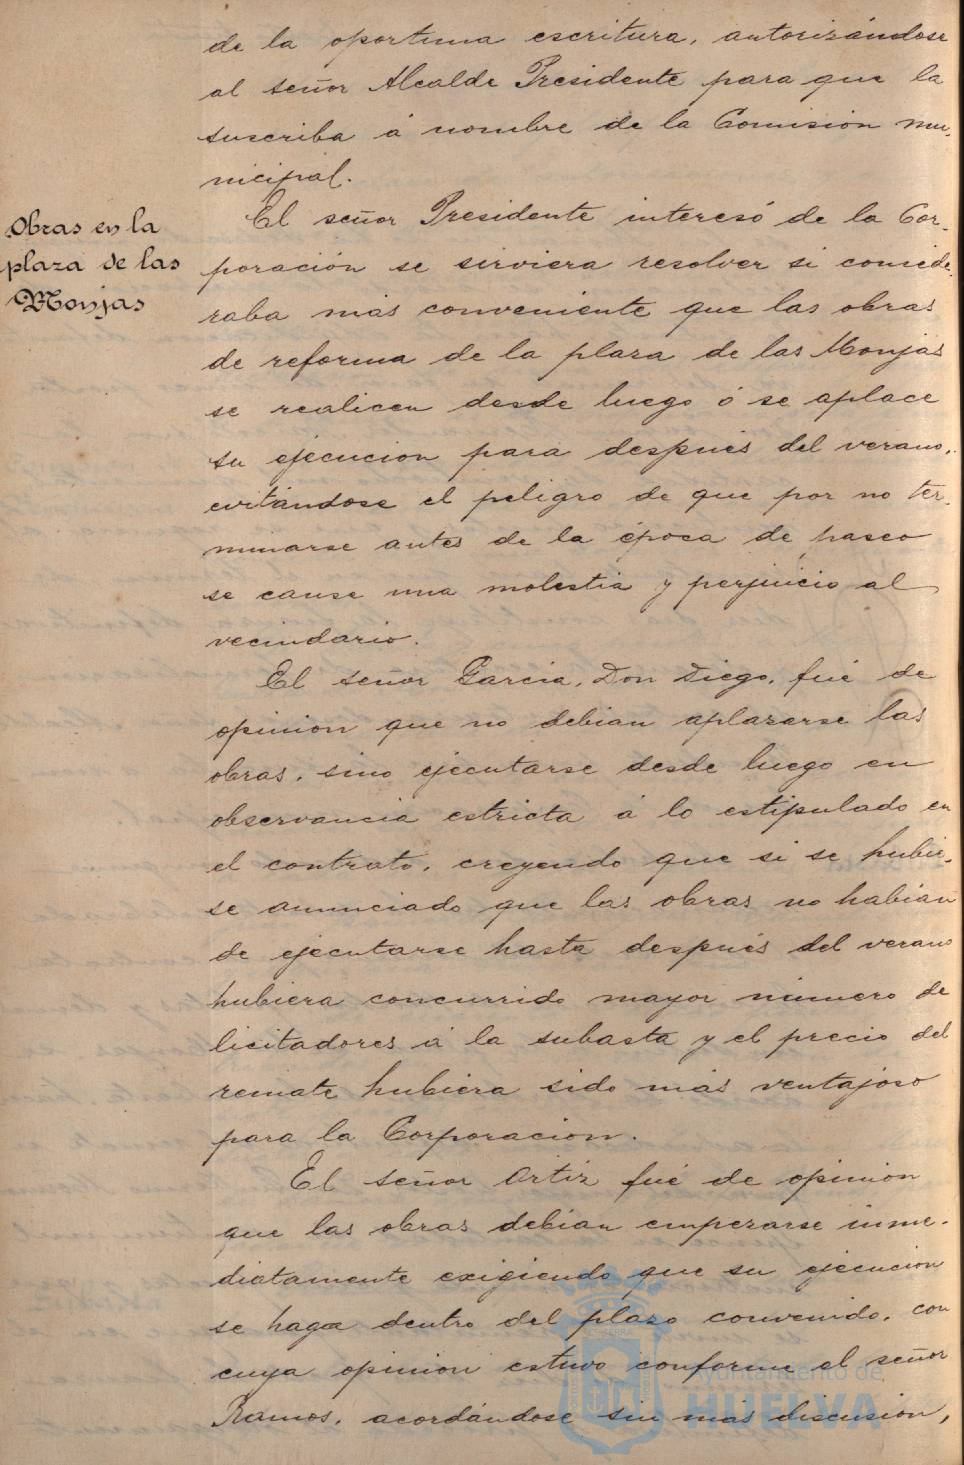 de la oportuna escritura, autorizándose
al señor Alcalde Presidente para que la
suscriba á nombre de la Comisión mu-
nicipal.
Obras en la
plaza de las
Monjas
El señor Presidente interesó de la Cor-
poración se sirviera resolver si conside-
raba más conveniente que las obras
de reforma de la plaza de las Monjas
se realicen desde luego ó se aplace
su ejecución para después del verano,
evitándose el peligro de que por no ter-
minarse antes de la época de paseo
se cause una molestia y perjuicio al
vecindario.
El señor García, Don Diego, fué de
opinion que no debian aplazarse las
obras, sino ejecutarse desde luego en
observancia estricta á lo estipulado en
el contrato, creyendo que si se hubie-
se anunciado que las obras no habian
de ejecutarse hasta después del verano
hubiera concurrido mayor número de
licitadores á la subasta y el precio del
remate hubiera sido más ventajoso
para la Corporacion.
El señor Ortiz fué de opinion
que las obras debian empezarse inme-
diatamente exigiendo que su ejecucion
se haga dentro del plazo convenido, con
cuya opinion estuvo conforme el señor
Ramos, acordándose sin más discusión,
Ayuntamiento de
HUELVA